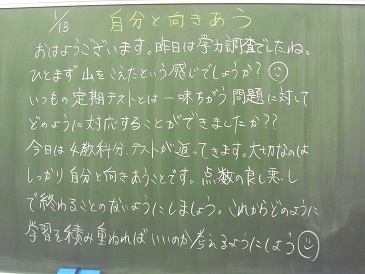 1/13 自分と向きあう
おはようございます。昨日は学力調査でしたね。
ひとまず山をこえたという感じでしょうか?
いつもの定期テストとは一味ちがう問題に対して
どのように対応することができましたか??
今日は4教科分テストが返ってきます。大切なのは
しっかり自分と向きあうことです。点数の良し悪し
で終わることのないようにしましょう。これからどのように
学習を積み重ねればいいのか考えるようにしよう